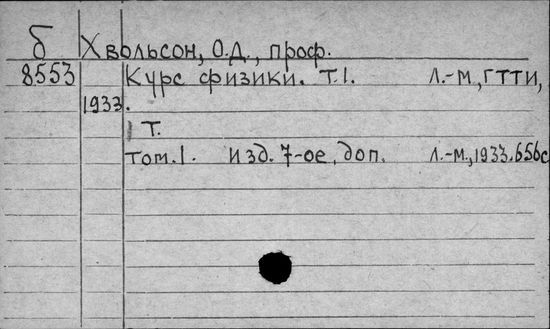 б Хвольсон, О.Д., проф.
8553 Курс физики. Т.1. Л.-М., ГТТИ,
1933.
1 Т.
Том.1. Изд. 7-ое, доп. Л.-М., 1933. 656с